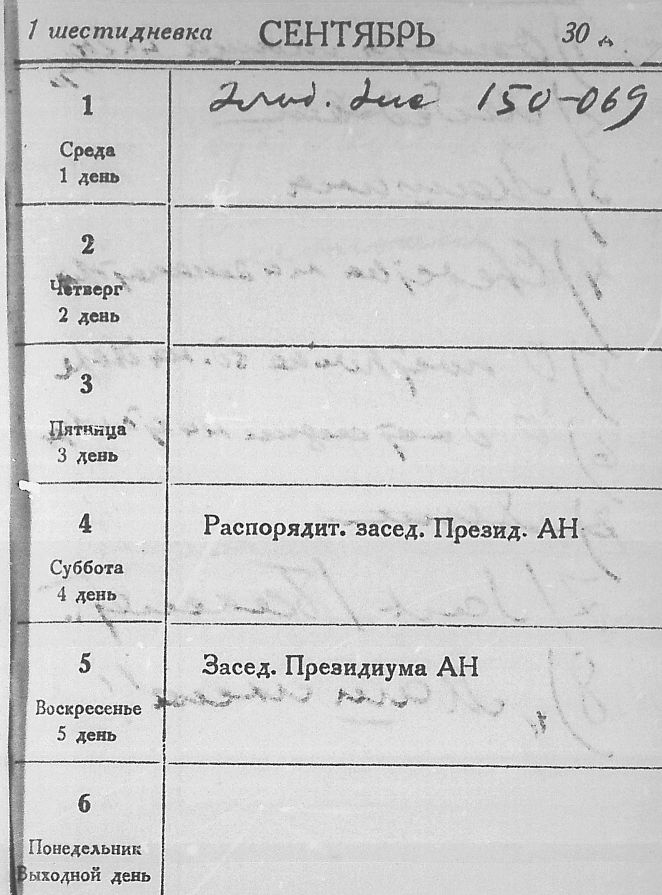 1 шестидневка СЕНТЯБРЬ 30 д
1
Среда
1 день
150-069
2
Четверг
2 день
3
Пятница
3 день
4
Суббота
4 день
Распорядит. засед. Презид. АН
5
Воскресенье
5 день
Засед. Президиума АН
6
Понедельник
Выходной день